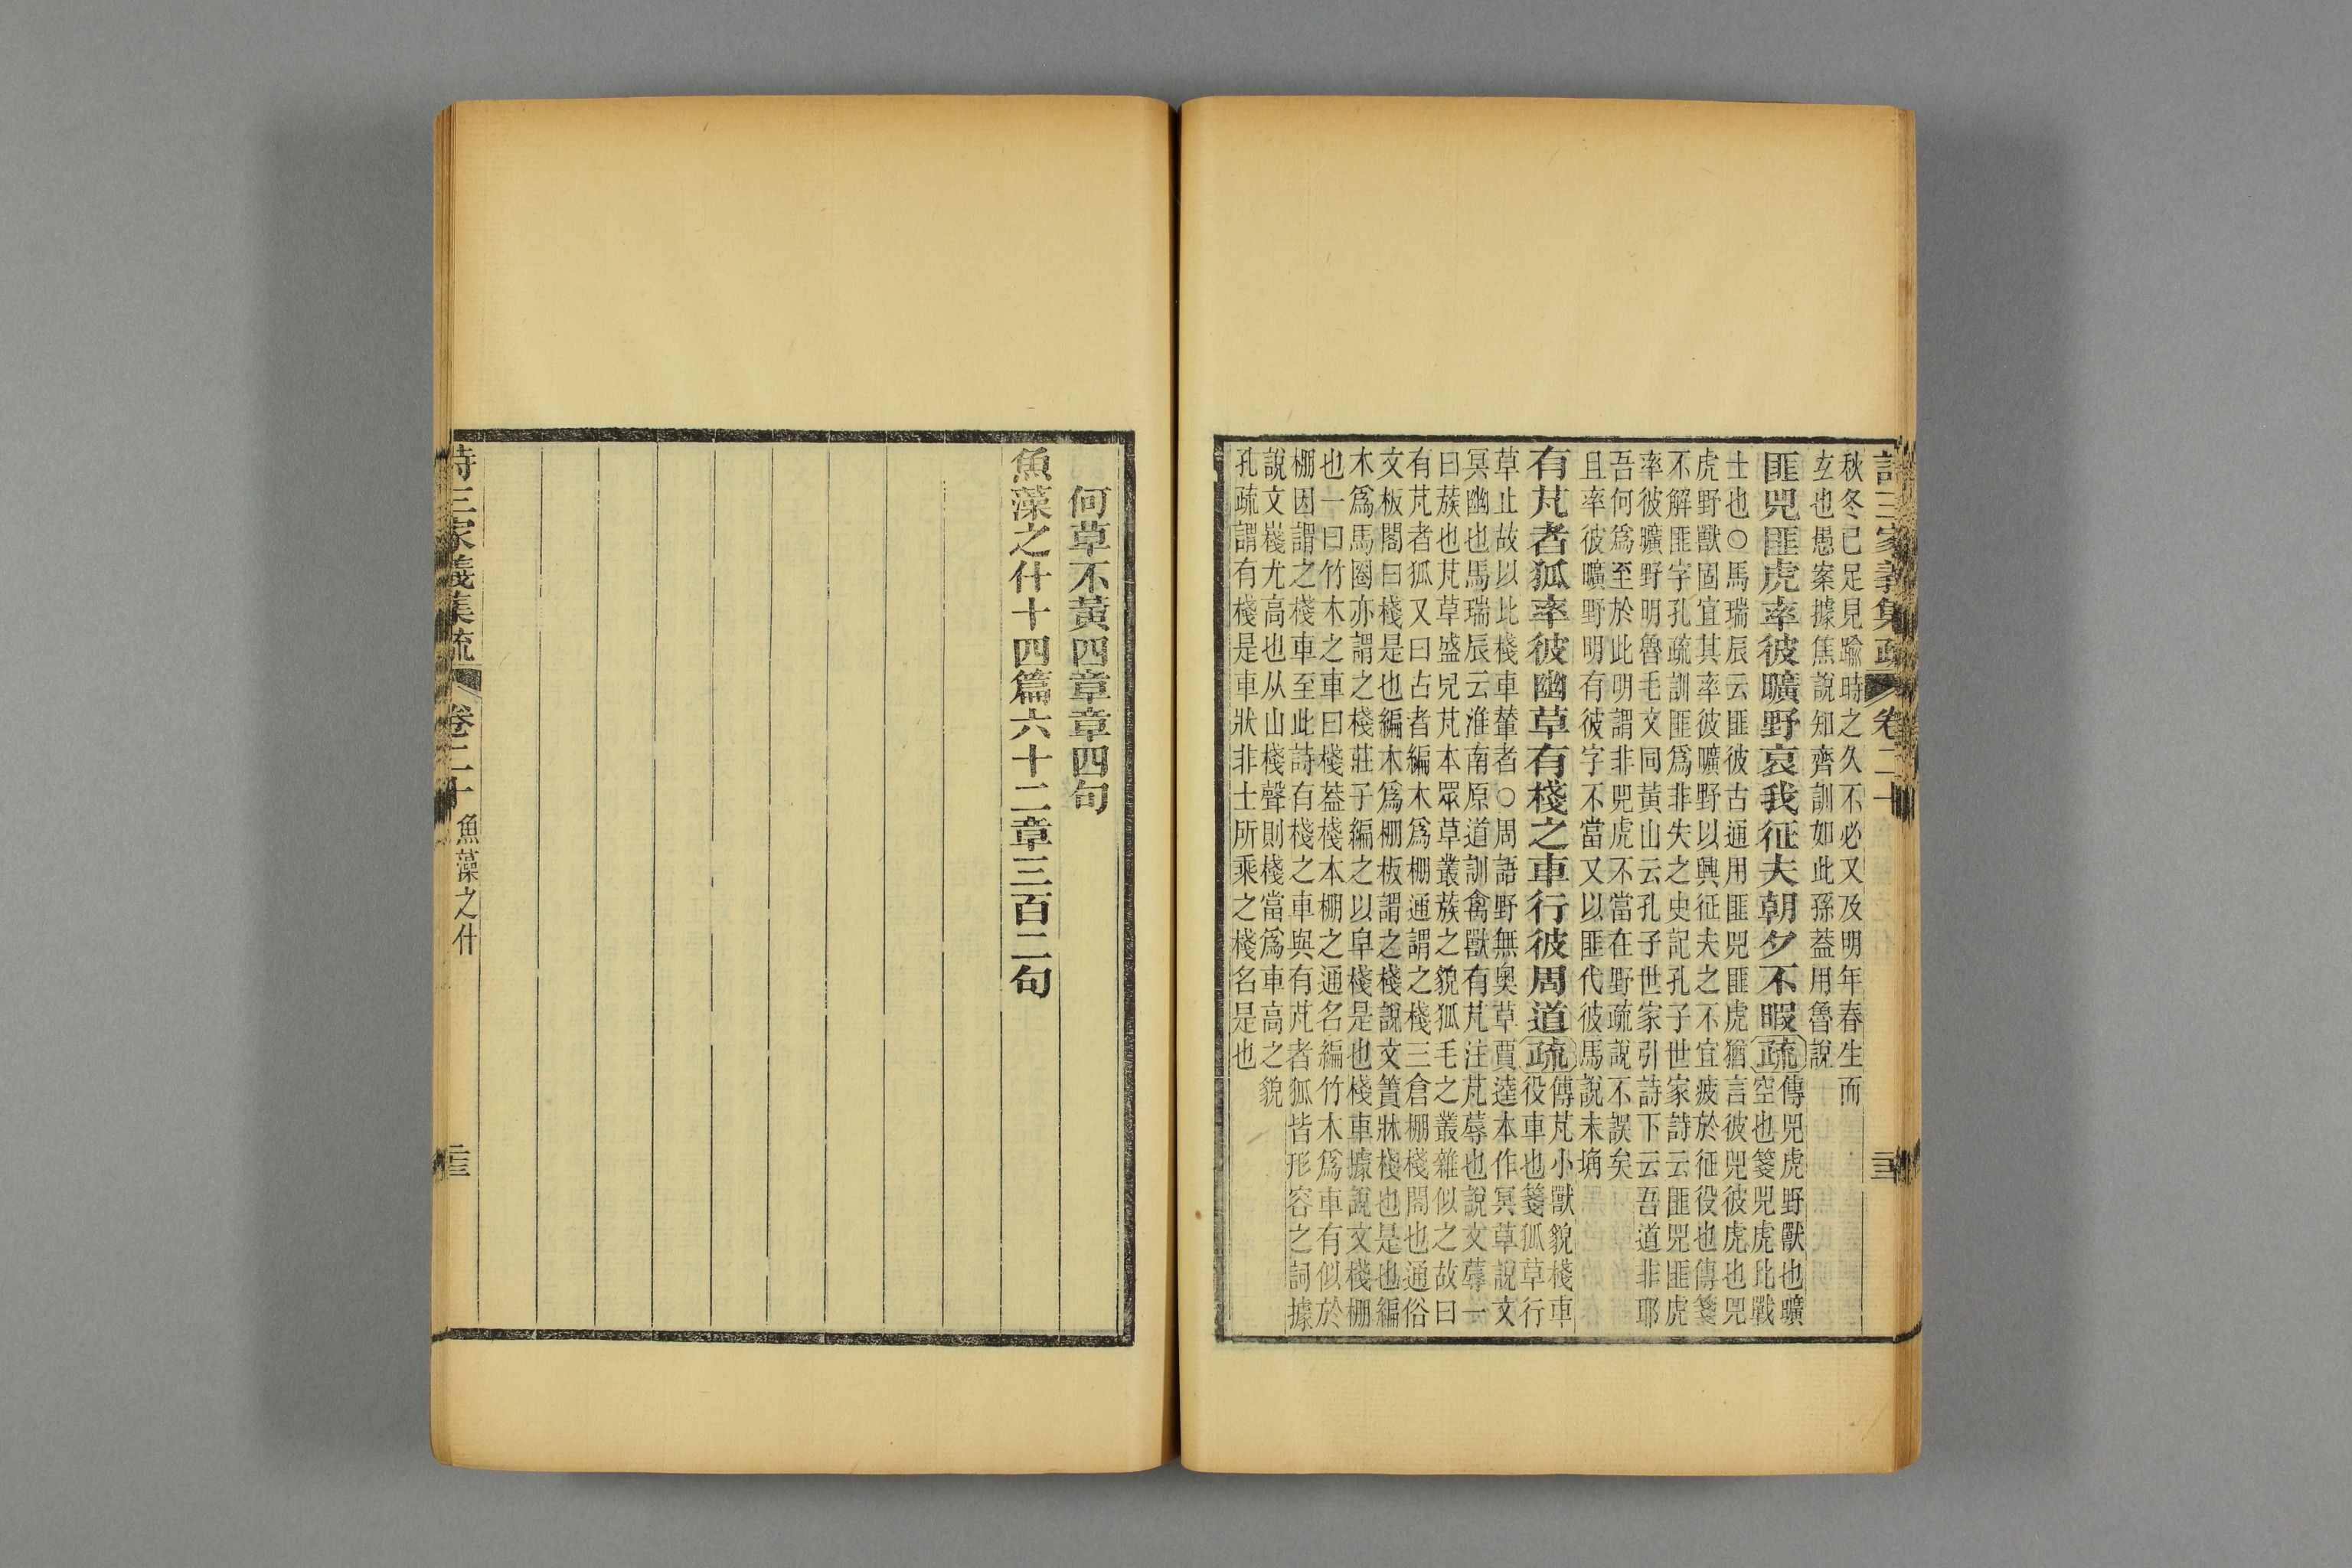 詩三家義集疏 卷二十
秋冬已足見踰時之久不必又及明年春生而
玄也愚案據焦說知齊訓如此孫葢用魯說
匪兕匪虎率彼曠野哀我征夫朝夕不暇疏傳兕虎野獸也曠
空也箋兕虎比戰
士也○馬瑞辰云匪彼古通用匪兕匪虎猶言彼兕彼虎也兕
虎野獸固宜其率彼曠野以興征夫之不宜疲於征役也傳箋
不解匪字孔疏訓匪爲非失之史記孔子世家詩云匪兕匪虎
率彼曠野明魯毛文同黃山云孔子世家引詩下云吾道非耶
吾何爲至於此明謂非兕虎不當在野疏說不誤矣
且率彼曠野明有彼字不當又以匪代彼馬說未塙
有芃者狐率彼幽草有棧之車行彼周道疏傳芃小獸貌棧車
役車也箋狐草行
草止故以比棧車輦者○周語野無奥草賈逵本作冥草說文
冥幽也馬瑞辰云淮南原道訓禽獸有芃注芃蓐也說文蓐一
曰蔟也芃草盛皃芃本眾草叢蔟之貌狐毛之叢雜似之故曰
有芃者狐又曰古者編木爲棚通謂之棧三倉棚棧閣也通俗
文板閣曰棧是也編木爲棚板謂之棧說文簀牀棧也是也編
木爲馬圈亦謂之棧莊子編之以皁棧是也棧車據說文棧棚
也一曰竹木之車曰棧葢棧本棚之通名編竹木爲車有似於
棚因謂之棧車至此詩有棧之車與有芃者狐皆形容之詞據
說文嶘尤高也从山棧聲則棧當爲車高之貌
孔疏謂有棧是車狀非士所乘之棧名是也
何草不黃四章章四句
魚藻之什十四篇六十二章三百二句
詩三家義集疏 卷二十 魚藻之什